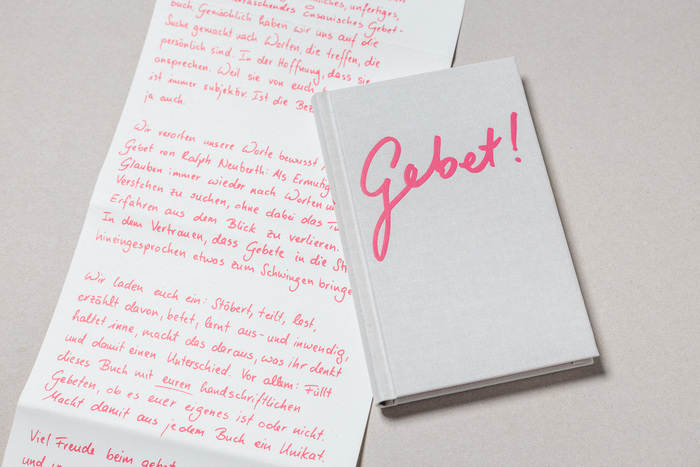 unfertiges,
buch. Gemächlich haben wir uns auf die
Suche gemacht nach Worten, die treffen, die
persönlich sind. In der Hoffnung, dass sie
ansprechen. Weil sie von euch
ist immer subjektiv. Ist die Bez
ja auch.
Wir verorten unsere Worte bewusst
Gebet von Ralph Neuberth: Als Ermutig
Glauben immer wieder nach Worten u
Verstehen zu suchen, ohne dabei das
Erfahren aus dem Blick zu verlieren.
In dem Vertrauen, dass Gebete in die St
hineingesprochen etwas zum Schwingen bringe
Wir laden euch ein: Stöbert, teilt, lest,
erzählt davon, betet, lernt aus- und inwendig,
haltet inne, macht das daraus, was ihr denkt
und damit einen Unterschied. Vor allem: Füllt
dieses Buch mit euren handschriftlichen
Gebeten, ob es euer eigenes ist oder nicht.
Macht damit aus jedem Buch ein Unikat.
Viel Freude beim gebet
und
Gebet!